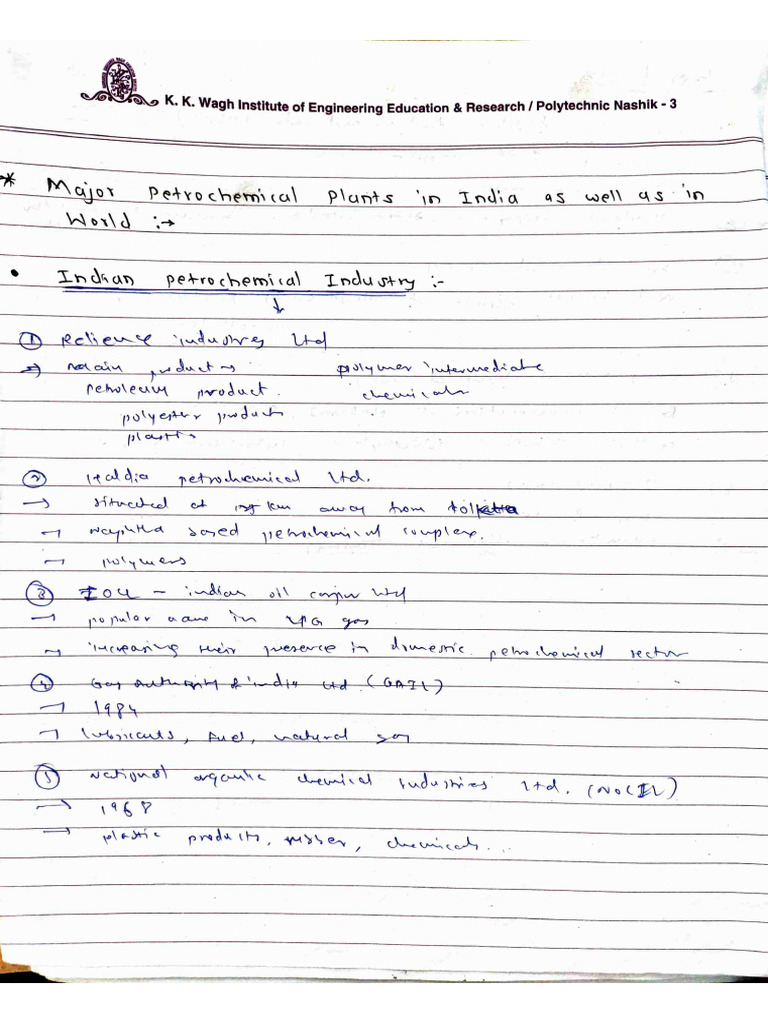 K. K. Wagh Institute of Engineering Education & Research / Polytechnic Nashik - 3
* Major Petrochemical Plants in India as well as in
World :→
• Indian petrochemical Industry :-
↓
① Relience industries Ltd
→ main product → polymer intermediate
petroleum product. chemicals
polyester product
plastic
② Haldia petrochemical Ltd.
→ situated at km away from Kolkatta
→ naphtha based petrochemical complex.
→ polymers
③ - indian oil Ltd
→ popular name in LPG gas
→ increasing their presence in domestic petrochemical sector
④ Gas Authority of india Ltd. (GAIL)
→ 1984
→ lubricants, fuel, natural gas
⑤ National organic chemical industries Ltd. (NOCIL)
→ 1968
→ plastic products, rubber, chemicals...